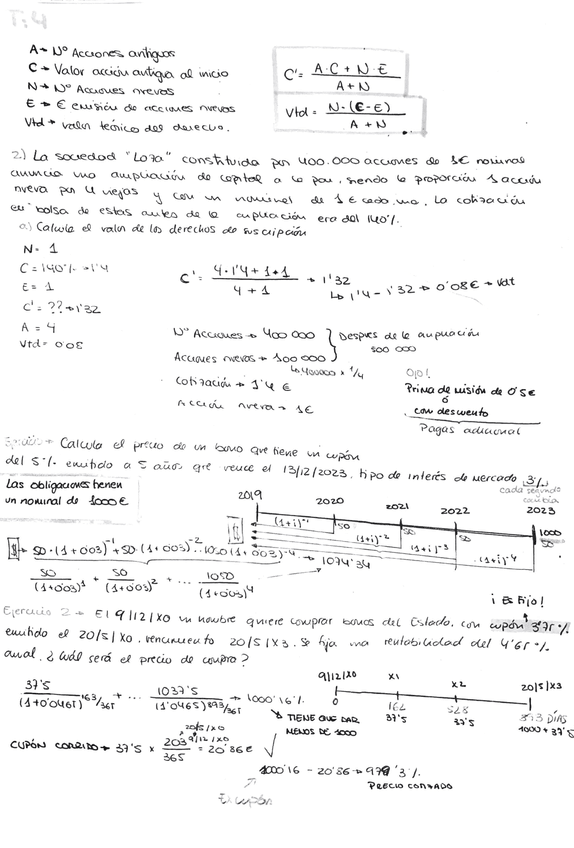 T:4
A → Nº Acciones antiguas
C → Valor acción antigua al inicio
N → Nº Acciones nuevas
E → € emisión de acciones nuevas
Vtd → valor teórico del derecho.
C' = A·C + N·E / A+N
Vtd = N·(C-E) / A+N
2) La sociedad "Lora" constituida por 400.000 acciones de 1€ nominal
anuncia una ampliación de capital a la par, siendo la proporción 1 acción
nueva por 4 viejas y con un nominal de 1€ cada una. La cotización
en bolsa de estas antes de la ampliación era del 140%.
a) Calcula el valor de los derechos de suscripción
N = 1
C = 140% → 1'4
E = 1
C' = ?? → 1'32
A = 4
Vtd = 0'08
C' = 4·1'4 + 1·1 / 4 + 1 → 1'32
↳ 1'4 - 1'32 → 0'08€ → Vdt
Nº Acciones → 400 000
Acciones nuevas → 100 000
↳ 400000 x 1/4
Después de la ampliación
500 000
Cotización → 1'4 €
Acción nueva → 1€
Ojo!
Prima de misión de 0'5€
o
con descuento
Pagas adicional
→ Calcula el precio de un bono que tiene un cupón
del 5% emitido a 5 años que vence el 13/12/2023. tipo de interés de mercado 3%
cada segundo
cambia
Las obligaciones tienen
un nominal de 1000€
2019 2020 2021 2022 2023
50 50 50 1000
50
(1+i)⁻¹
(1+i)⁻²
(1+i)⁻³
(1+i)⁻⁴
50·(1+0'03)⁻¹ + 50·(1+0'03)⁻² ... 1050(1+0'03)⁻⁴ → 1074'34
50 / (1+0'03)¹ + 50 / (1+0'03)² + ... 1050 / (1+0'03)⁴
¡Es Fijo!
Ejercicio 2 → El 9/12/X0 un hombre quiere comprar bonos del Estado, con cupón 3'75%
emitido el 20/5/X0, vencimiento 20/5/X3. Se fija una rentabilidad del 4'65%
anual. ¿Cuál será el precio de compra?
37'5 / (1+0'0465)^163/365 + ... 1037'5 / (1'0465)^893/365 → 1000'16%
↳ TIENE QUE DAR
MENOS DE 1000
9/12/X0 X1 X2 20/5/X3
0 162 528 893 DÍAS
37'5 37'5 1000+37'5
20/5/X0
9/12/X0
CUPÓN CORRIDO → 37'5 x 203 / 365 = 20'86€
1000'16 - 20'86 → 979'3%
PRECIO CONTADO
Ex cupón